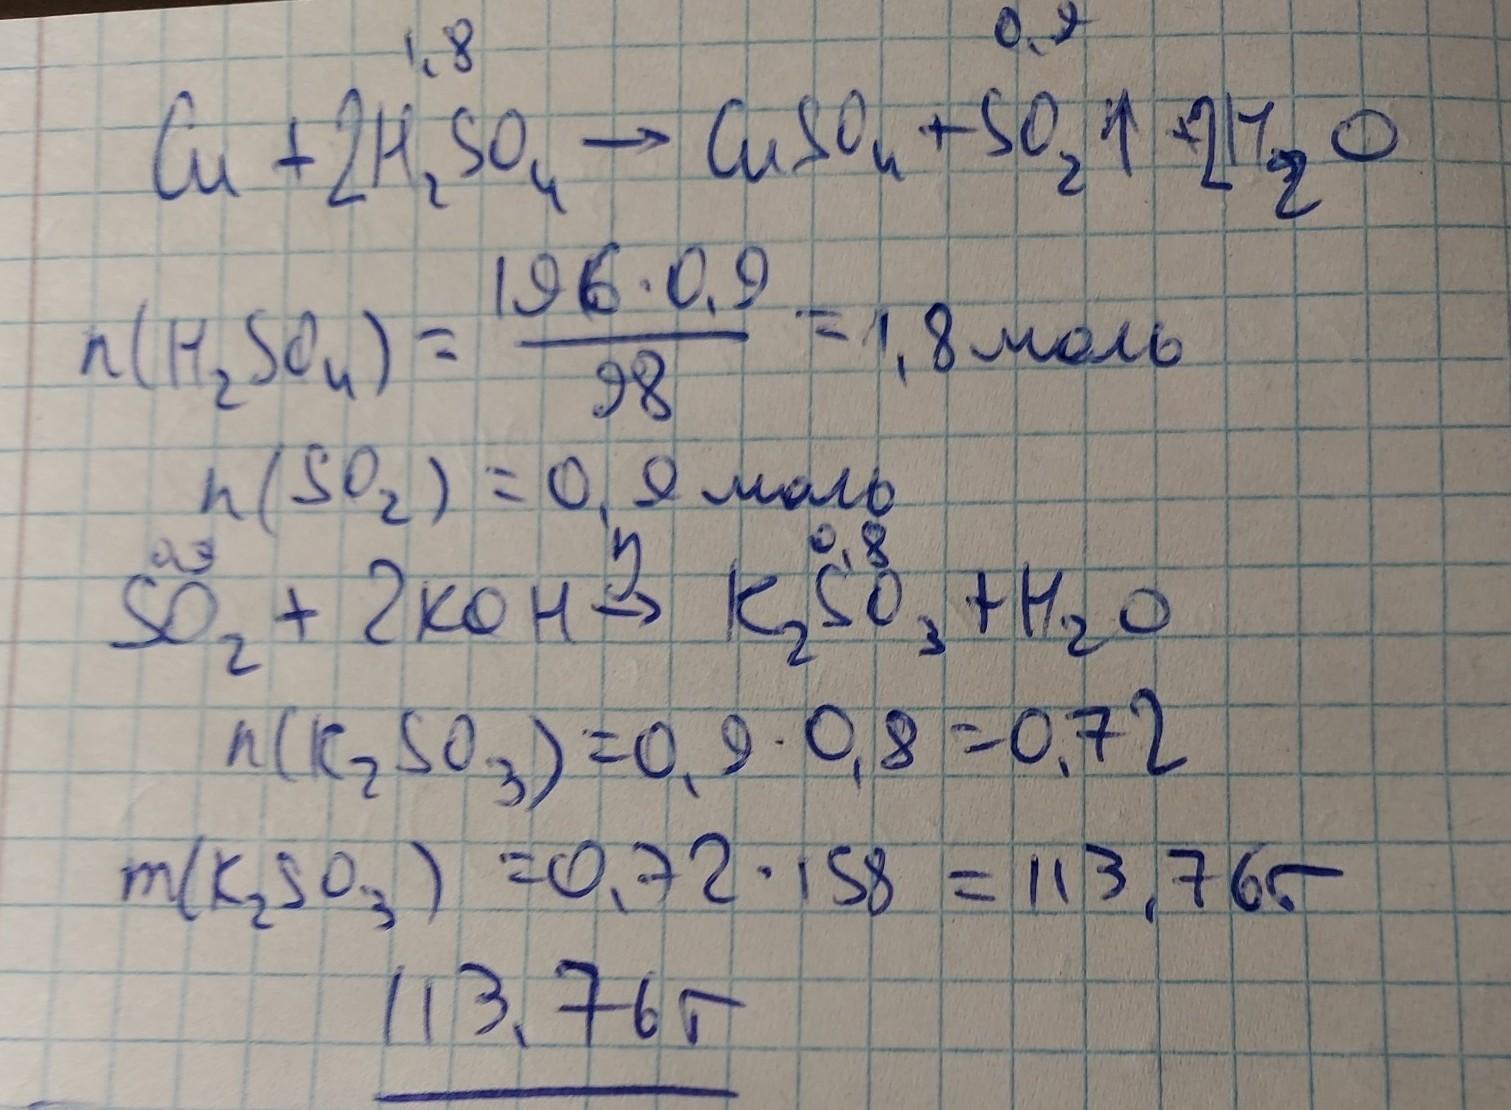 1,8 0,9
Cu + 2H₂SO₄ → CuSO₄ + SO₂↑ + 2H₂O
n(H₂SO₄) = 196·0,9 / 98 = 1,8 моль
n(SO₂) = 0,9 моль
0,9 η 0,8
SO₂ + 2KOH → K₂SO₃ + H₂O
n(K₂SO₃) = 0,9·0,8 = 0,72
m(K₂SO₃) = 0,72·158 = 113,76г
113,76г